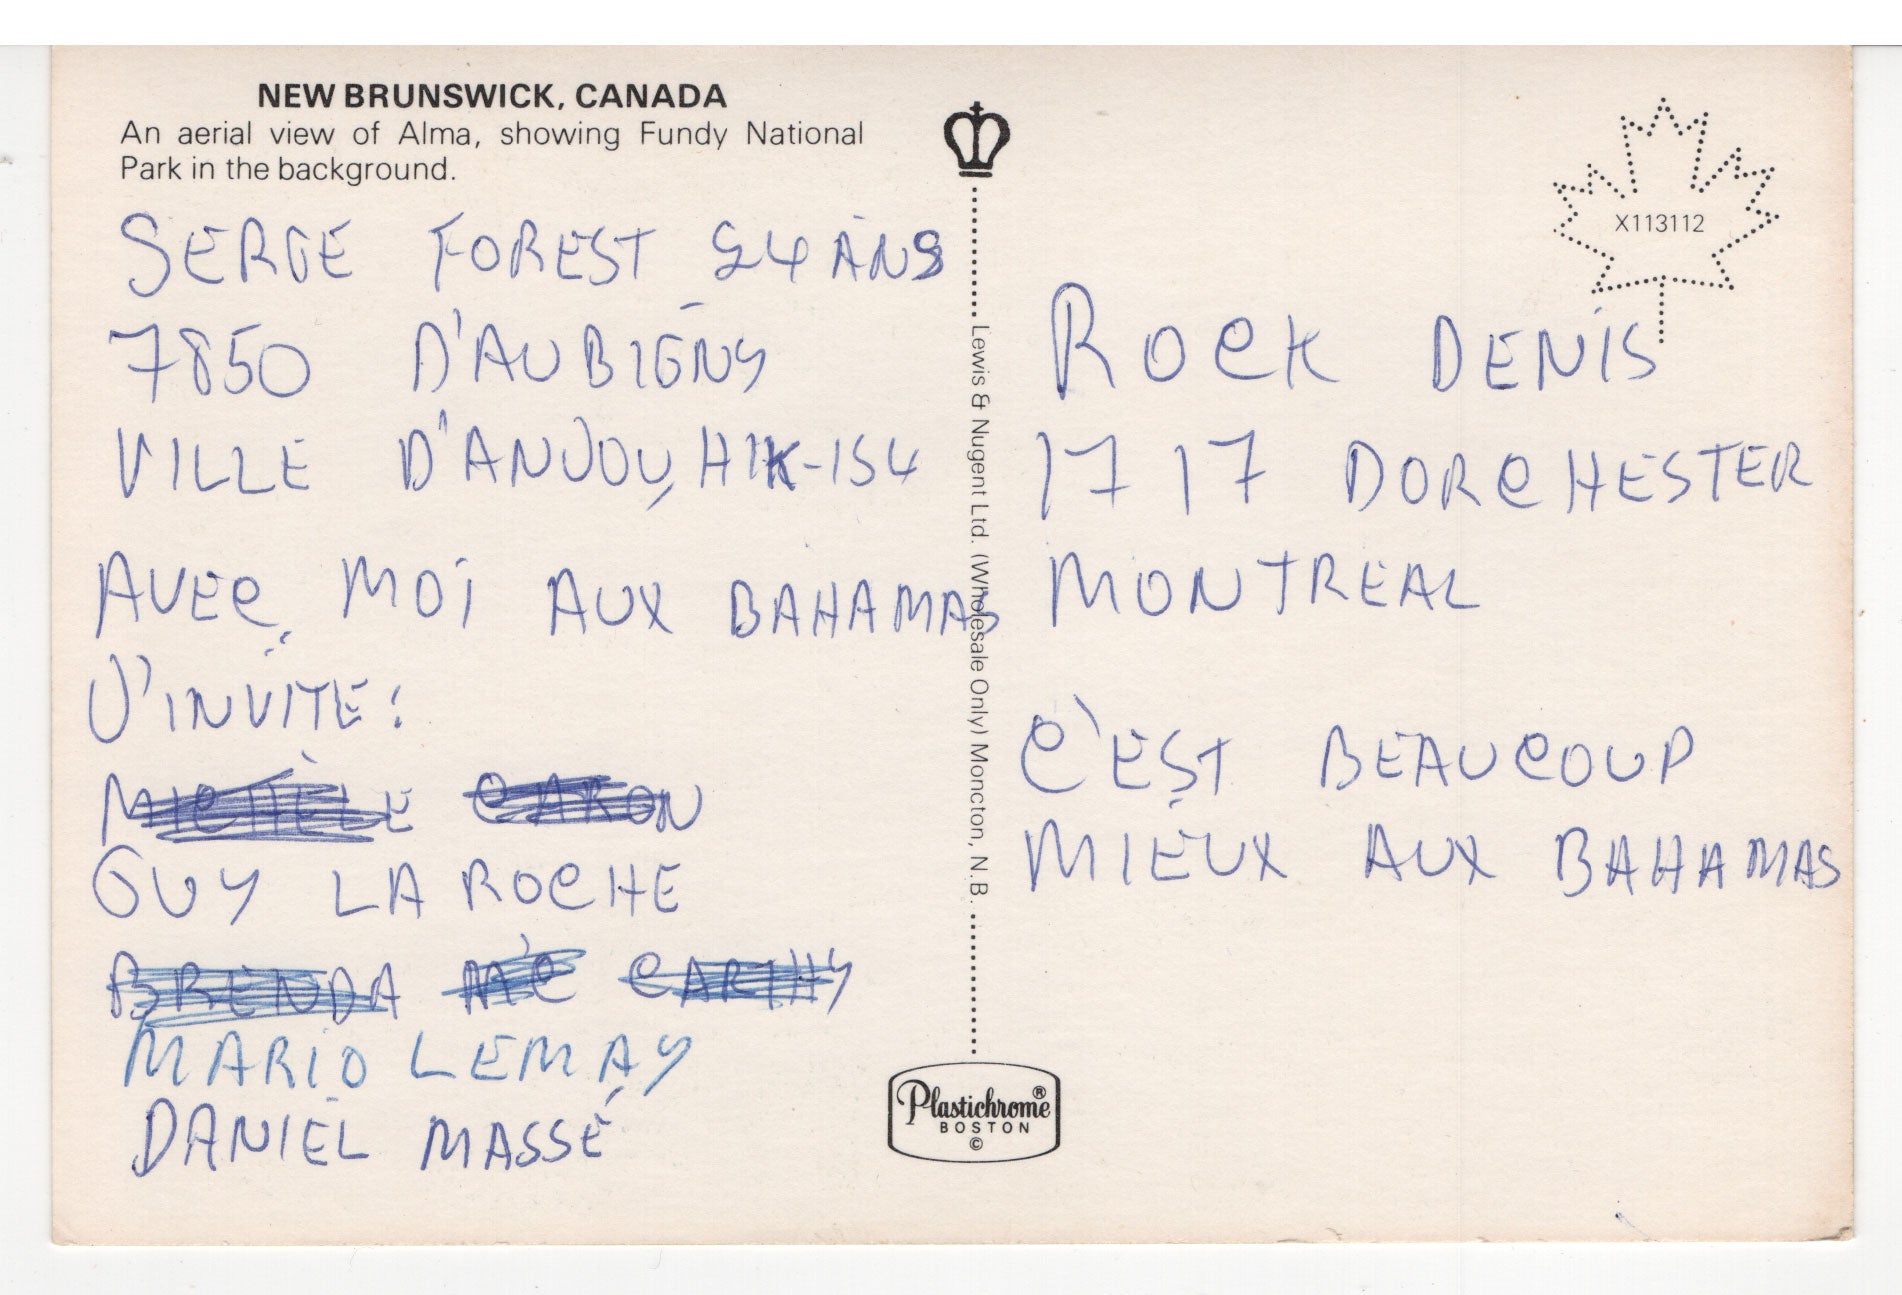 NEW BRUNSWICK, CANADA
An aerial view of Alma, showing Fundy National
Park in the background.
SERGE FOREST 24 ANS
7850 D'AUBIGNY
VILLE D'ANJOU, H1K-1S4
AVEC MOI AUX BAHAMAS
J'INVITE:
MICHÈLE CARON
GUY LA ROCHE
BRENDA MC CARTHY
MARIO LEMAY
DANIEL MASSÉ
Lewis & Nugent Ltd. (Wholesale Only) Moncton, N.B.
Plastichrome®
BOSTON
©
X113112
ROCK DENIS
1717 DORCHESTER
MONTREAL
C'EST BEAUCOUP
MIEUX AUX BAHAMAS